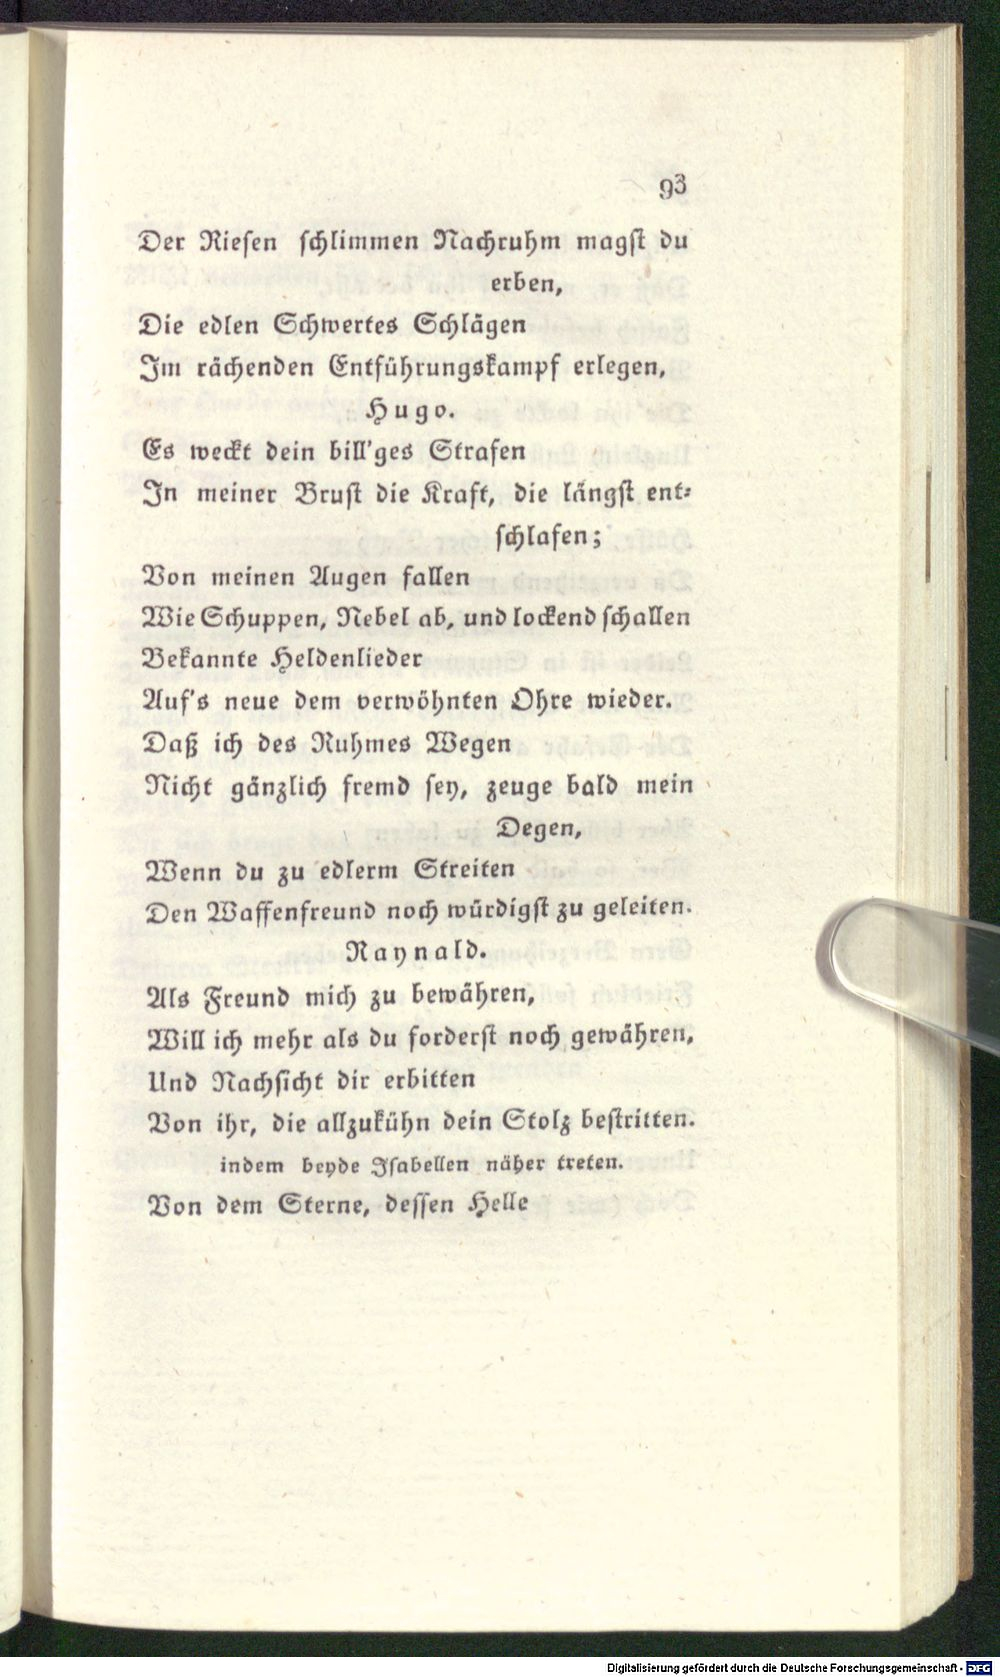 93
Der Riesen schlimmen Nachruhm magst du
erben,
Die edlen Schwertes Schlägen
Im rächenden Entführungskampf erlegen,
Hugo.
Es weckt dein bill'ges Strafen
In meiner Brust die Kraft, die längst ent⸗
schlafen;
Von meinen Augen fallen
Wie Schuppen, Nebel ab, und lockend schallen
Bekannte Heldenlieder
Auf's neue dem verwöhnten Ohre wieder.
Daß ich des Ruhmes Wegen
Nicht gänzlich fremd sey, zeuge bald mein
Degen,
Wenn du zu edlerm Streiten
Den Waffenfreund noch würdigst zu geleiten.
Raynald.
Als Freund mich zu bewähren,
Will ich mehr als du forderst noch gewähren,
Und Nachsicht dir erbitten
Von ihr, die allzukühn dein Stolz bestritten.
indem beyde Isabellen näher treten.
Von dem Sterne, dessen Helle
Digitalisierung gefördert durch die Deutsche Forschungsgemeinschaft - DFG